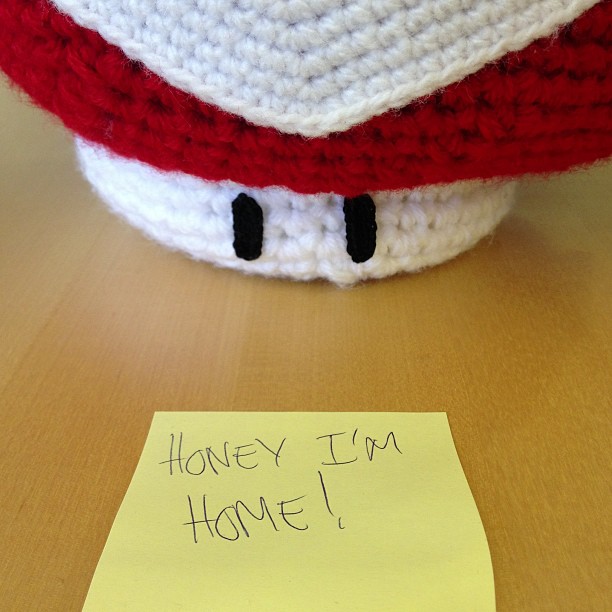 HONEY I'M
HOME!